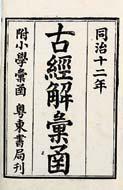 同治十二年
古經解彙函
附小學彙函 粵東書局刊